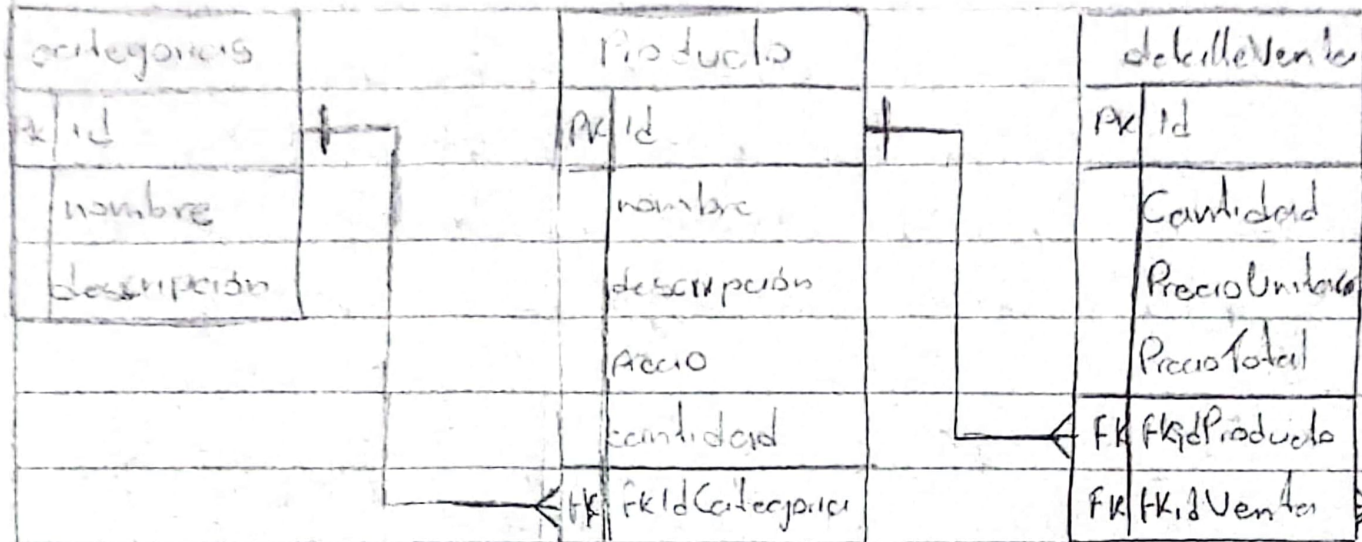 categorias
PK Id
nombre
descripción
Producto
PK Id
nombre
descripción
Precio
cantidad
FK FkIdCategoria
detalleVenta
PK Id
Cantidad
PrecioUnitario
PrecioTotal
FK FKidProducto
FK FKidVenta